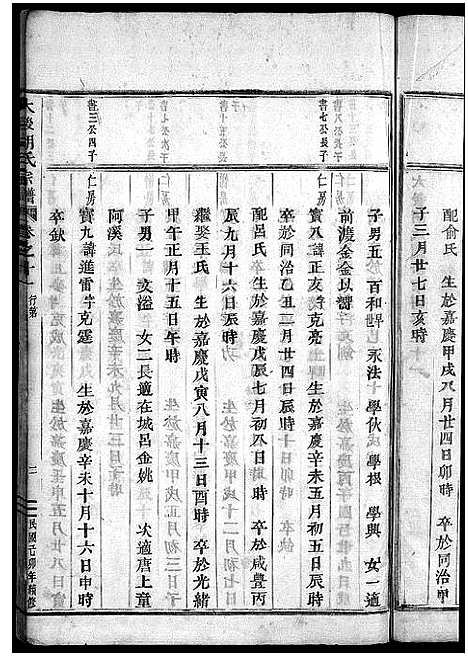 配俞氏 生於嘉慶甲戌八月廿四日卯時 卒於同治甲
子三月廿七日亥時
書七公長子
子男五 百和 永法 學伙 學根 學興 女一適
前渡金金以
卒於同治乙丑二月廿四日辰時
仁房
寳八諱正亥字克亮 生於嘉慶辛未五月初五日辰時
配呂氏 生於嘉慶戊辰七月初八日 時 卒於咸豊丙
辰九月十六日辰時
繼娶王氏 生於嘉慶戊寅八月十三日酉時 卒於光緒
甲午正月十五日午時
子男一 文溢 女二長適在城呂金姚 次適唐上童
阿溪
書三公四子
仁房
寳九諱進雷字克霆 生於嘉慶辛未十月十六日申時
卒欽
胡氏宗譜
卷之十一 行第
二
民國己卯年續修